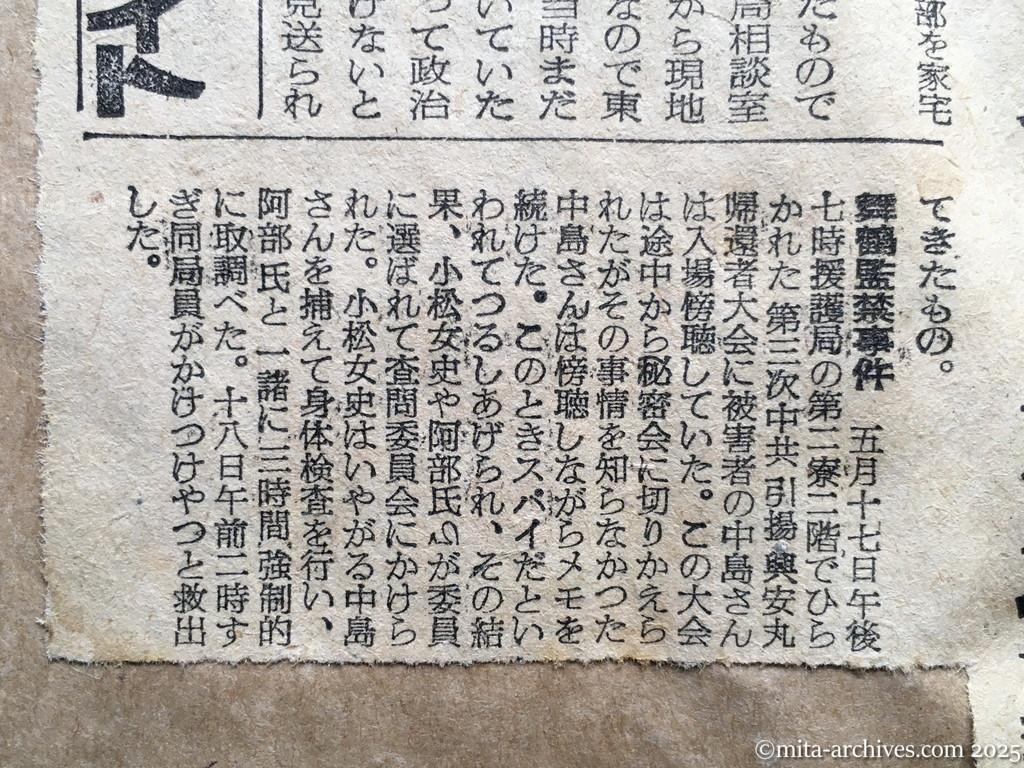 部を家宅
たもので
局相談室
から現地
なので東
当時まだ
いていた
って政治
けないと
見送られ
イト
てきたもの。
舞鶴監禁事件　五月十七日午後
七時援護局の第二寮二階でひら
かれた第三次中共引揚興安丸
帰還者大会に被害者の中島さん
は入場傍聴していた。この大会
は途中から秘密会に切りかえら
れたがその事情を知らなかつた
中島さんは傍聴しながらメモを
続けた。このときスパイだとい
われてつるしあげられ、その結
果、小松女史や阿部氏らが委員
に選ばれて査問委員会にかけら
れた。小松女史はいやがる中島
さんを捕えて身体検査を行い、
阿部氏と一諸に三時間強制的
に取調べた。十八日午前二時す
ぎ同局員がかけつけやつと救出
した。
©mita-archives.com 2025